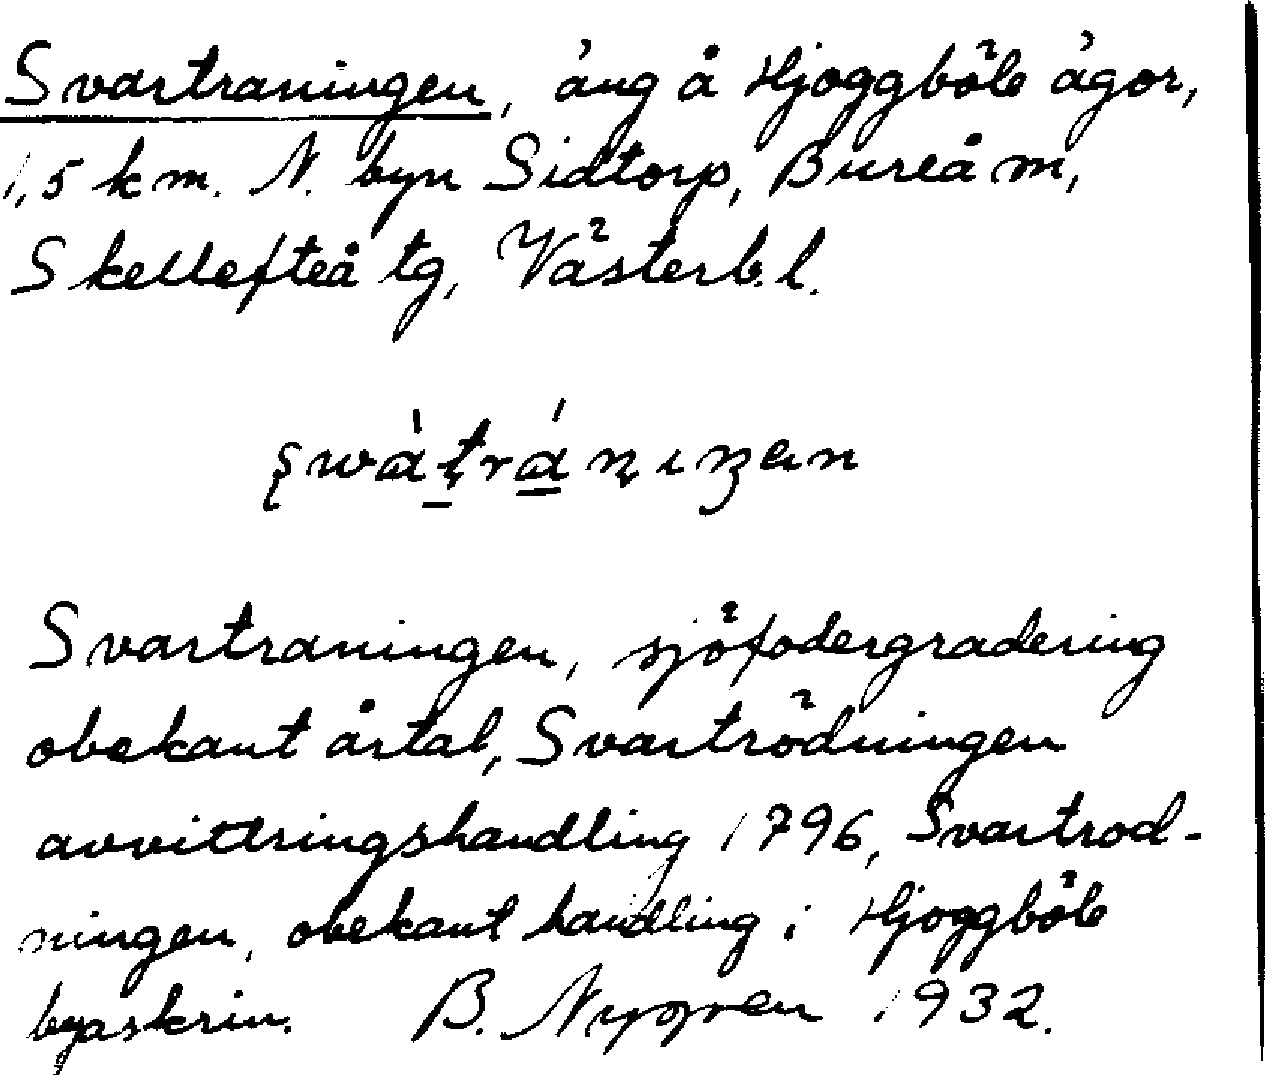 Svartraningen, äng å Hjoggböle ägor,
1,5 km. N. byn Sidtorp, Bureå m,
Skellefteå tg, Västerb. l.
Svartraningen, sjöfodergradering
obekant årtal, Svartrödningen
avvittringshandling 1796, Svartrod-
ningen, obekant handling i Hjoggböle
byaskrin. B. Nygren 1932.